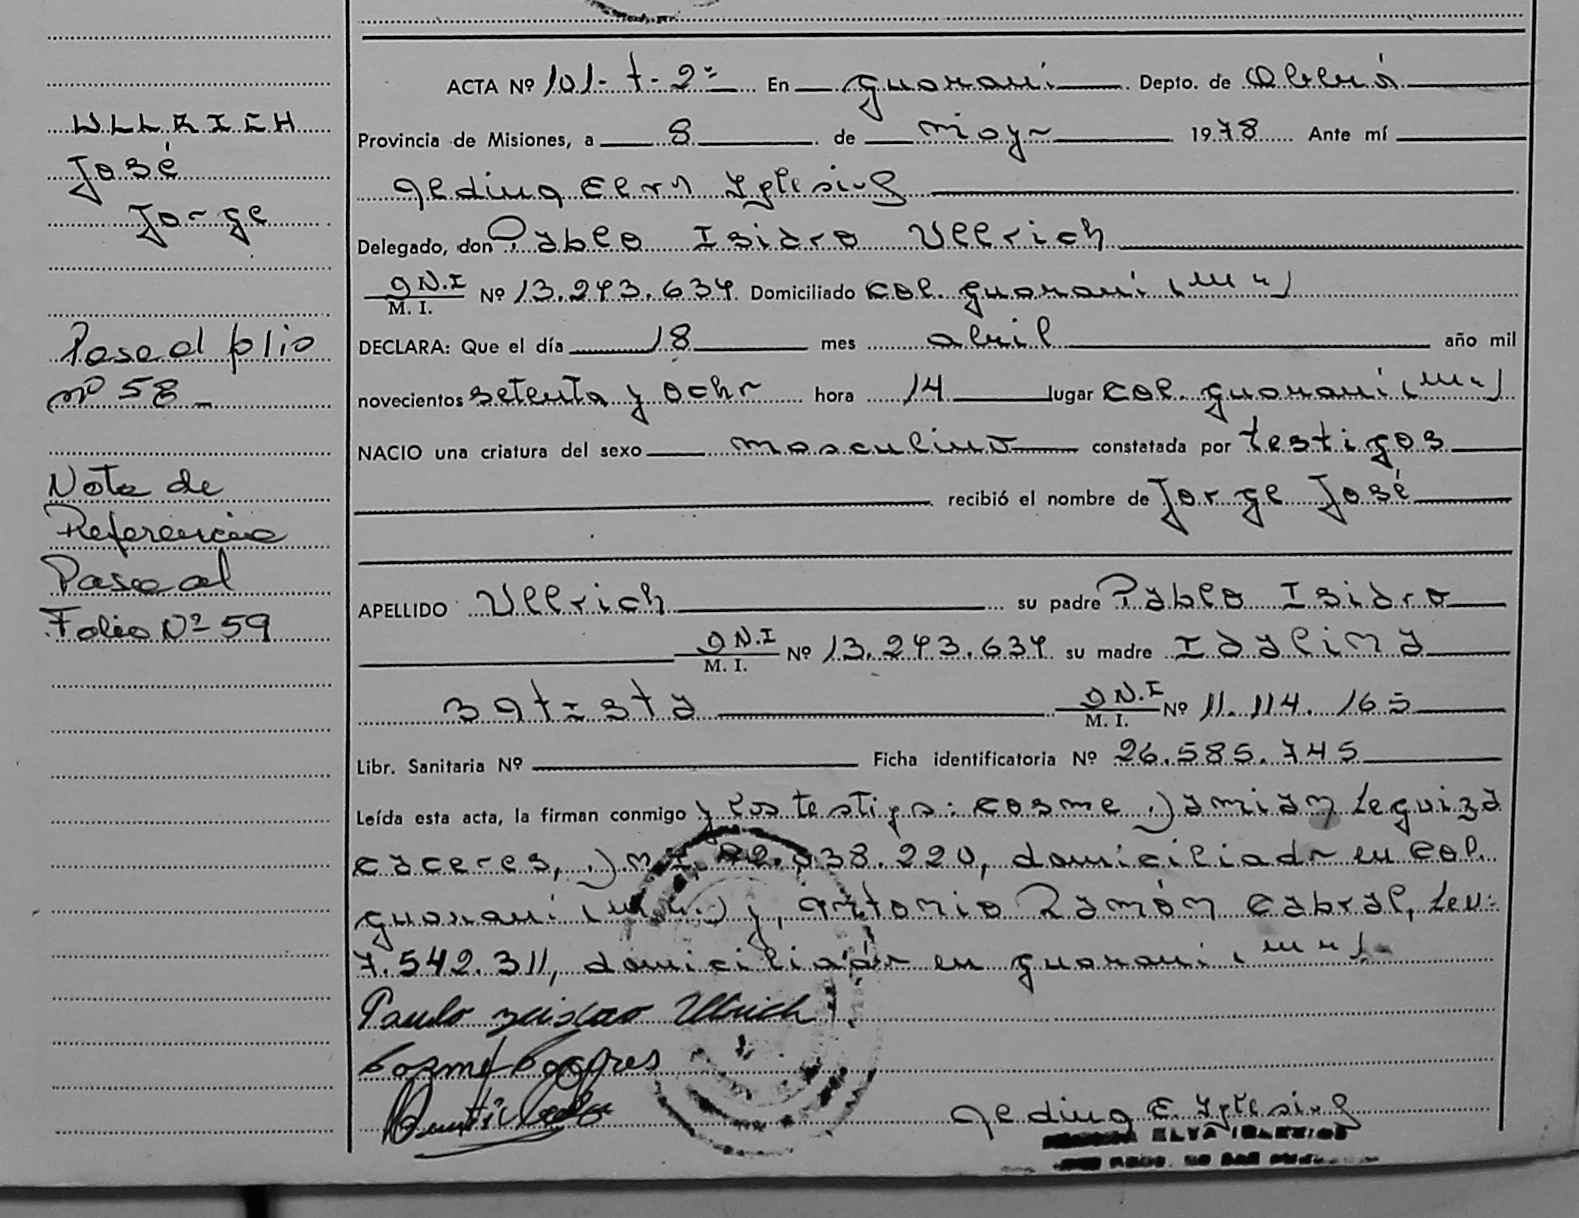 ULLRICH
José
Jorge
Pase al folio
nº 58 -
Nota de
Referencia
Pase al
Folio Nº 59
ACTA Nº 101-t-2º En Guaraní Depto. de Oberá
Provincia de Misiones, a 8 de mayo 1978 Ante mí
Elva Yglesias
Delegado, don Pablo Isidro Ullrich
D.N.I
M. I. Nº 13.273.637 Domiciliado Col. Guaraní (Mnes)
DECLARA: Que el día 18 mes abril año mil
novecientos setenta y ocho hora 14 lugar Col. Guaraní (Mnes)
NACIO una criatura del sexo masculino constatada por testigos
recibió el nombre de Jorge José
APELLIDO Ullrich su padre Pablo Isidro
D.N.I
M. I. Nº 13.273.637 su madre Idalina
Batista D.N.I
M. I. Nº 11.114.165
Libr. Sanitaria Nº Ficha identificatoria Nº 26.585.745
Leída esta acta, la firman conmigo y los testigos: Cosme Damian Leguiza
Caceres, domiciliado en Col.
Guaraní y, Antonio Ramón Cabral, Lev:
7.542.311, domiciliado en Guaraní (Mnes)-
Ullrich
E. Yglesias
ELVA IGLESIAS